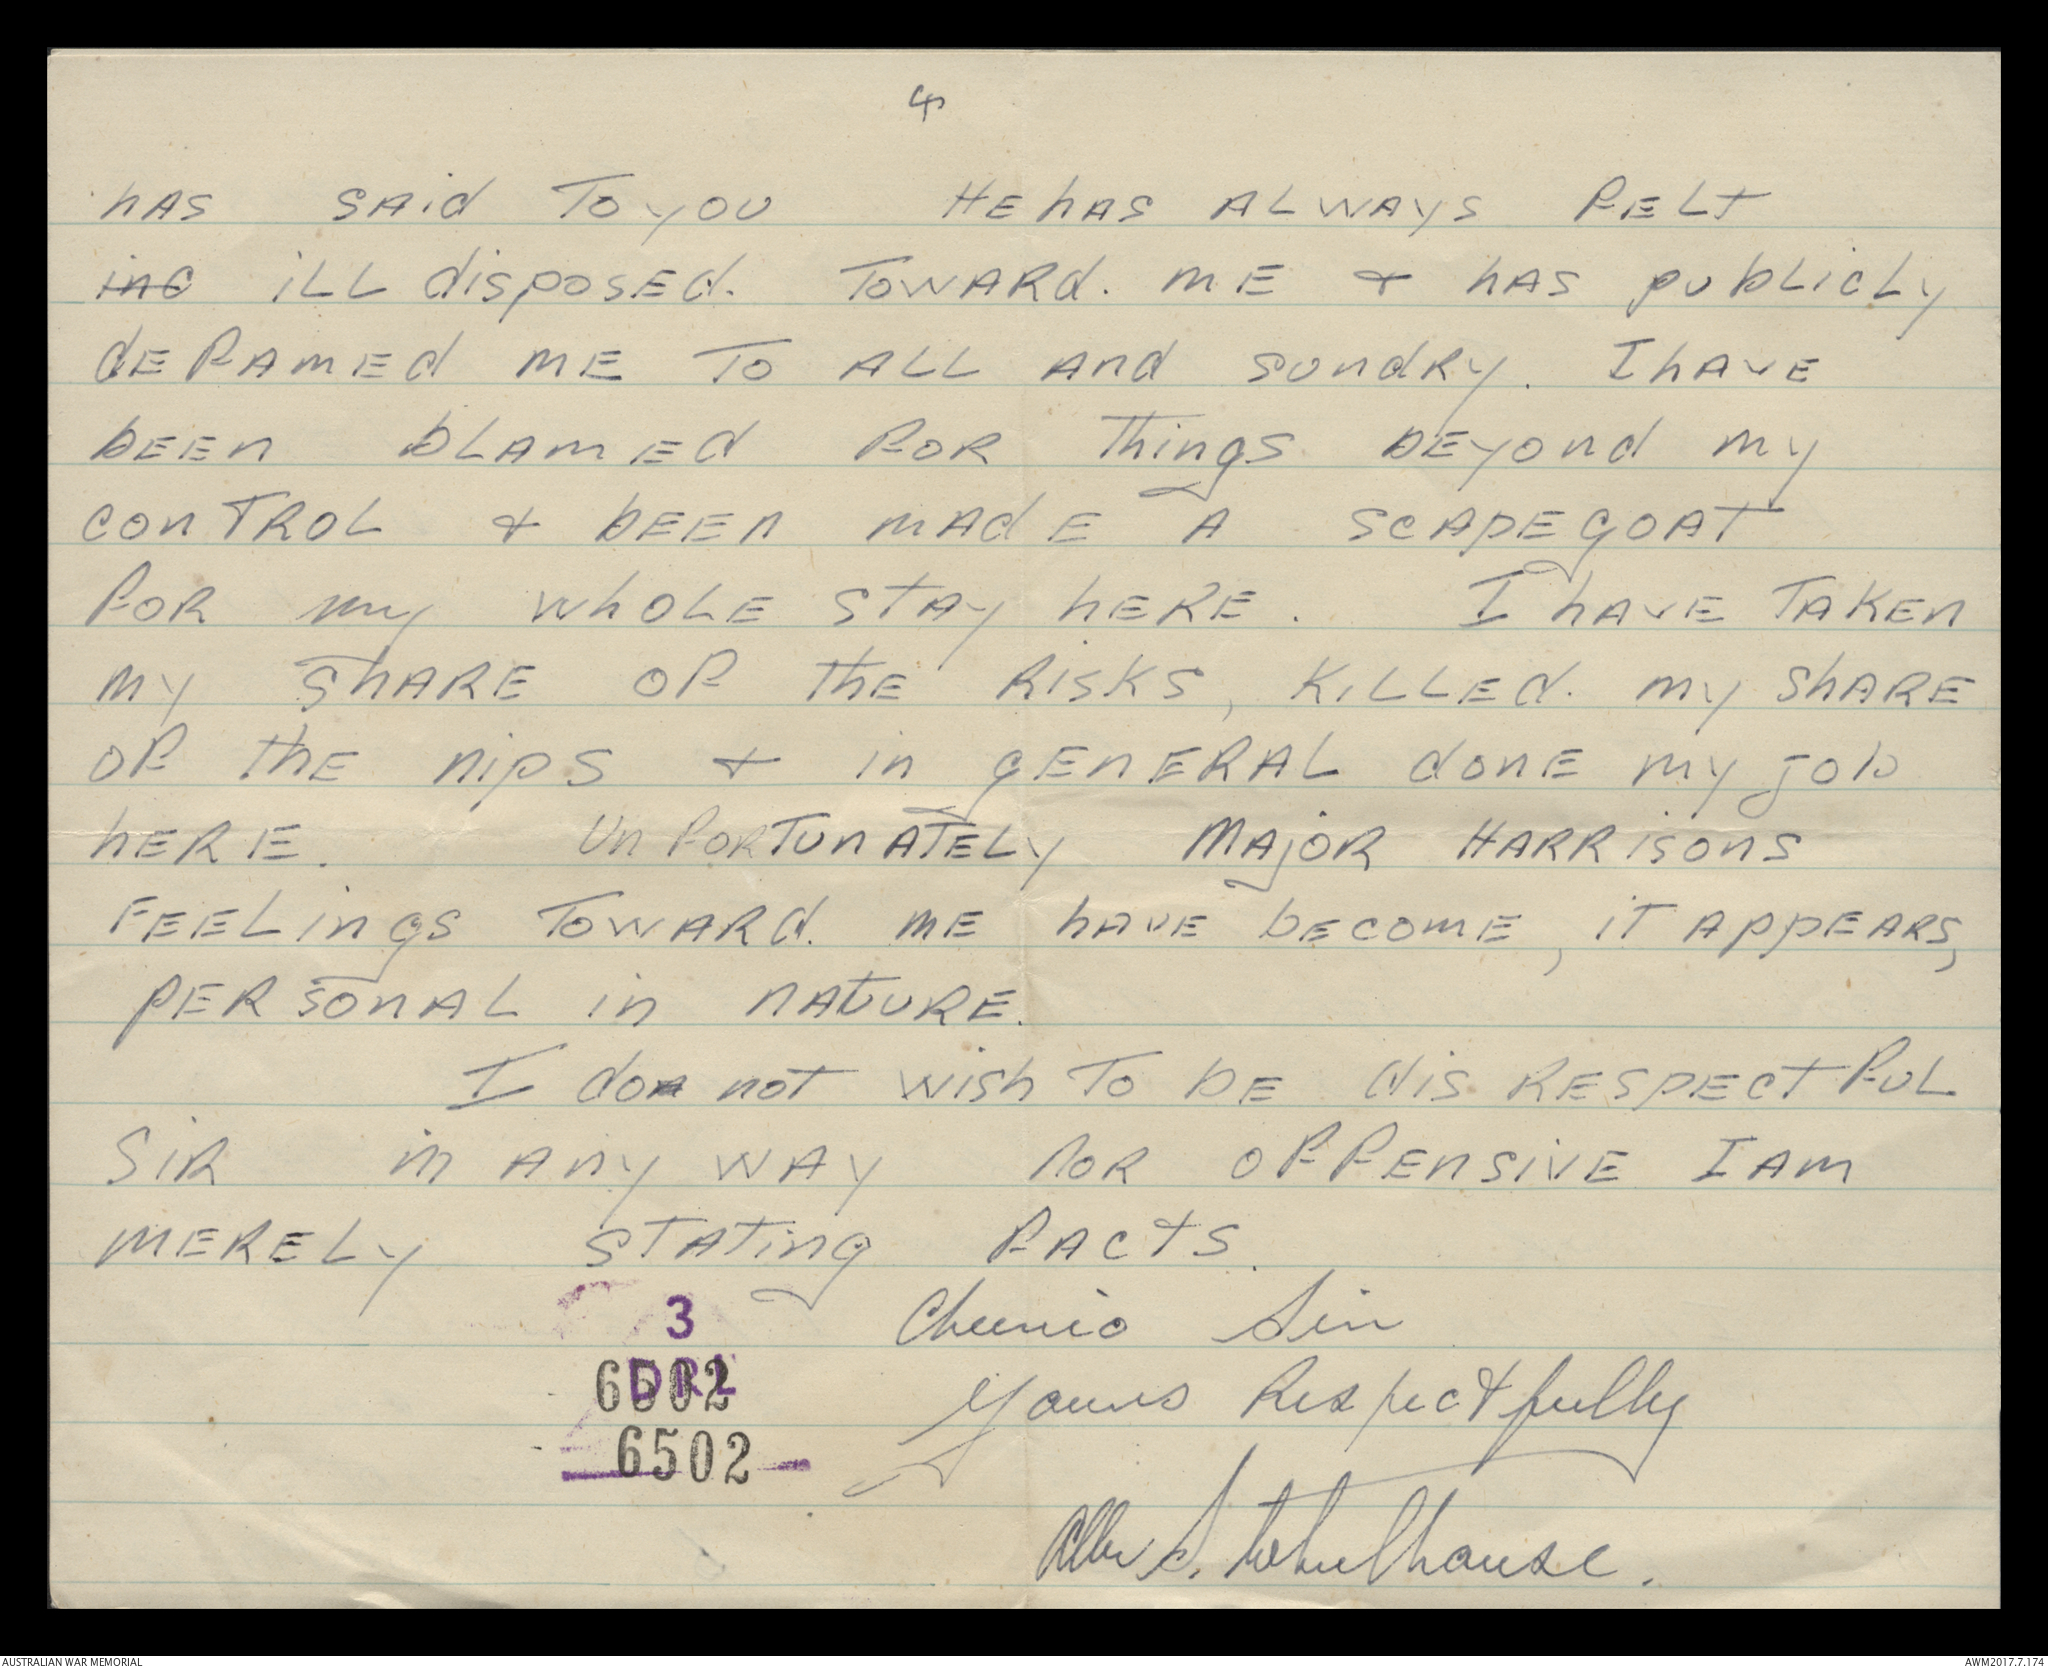 4
has said to you He has always felt
inc ill disposed. Toward. me & has publicly
defamed me to all and sundry. I have
been blamed for things beyond my
control & been made a scapegoat
for my whole stay here. I have taken
my share of the risks, killed. my share
of the nips & in general done my job
here. Unfortunately Major Harrisons
feelings toward. me have become, it appears,
personal in nature.
I do not wish to be disrespectful
Sir in any way nor offensive I am
merely stating facts.
Cheerio Sir
Yours Respectfully
S. Wheelhouse.
3
DRL
6502
6502
AUSTRALIAN WAR MEMORIAL
AWM2017.7.174